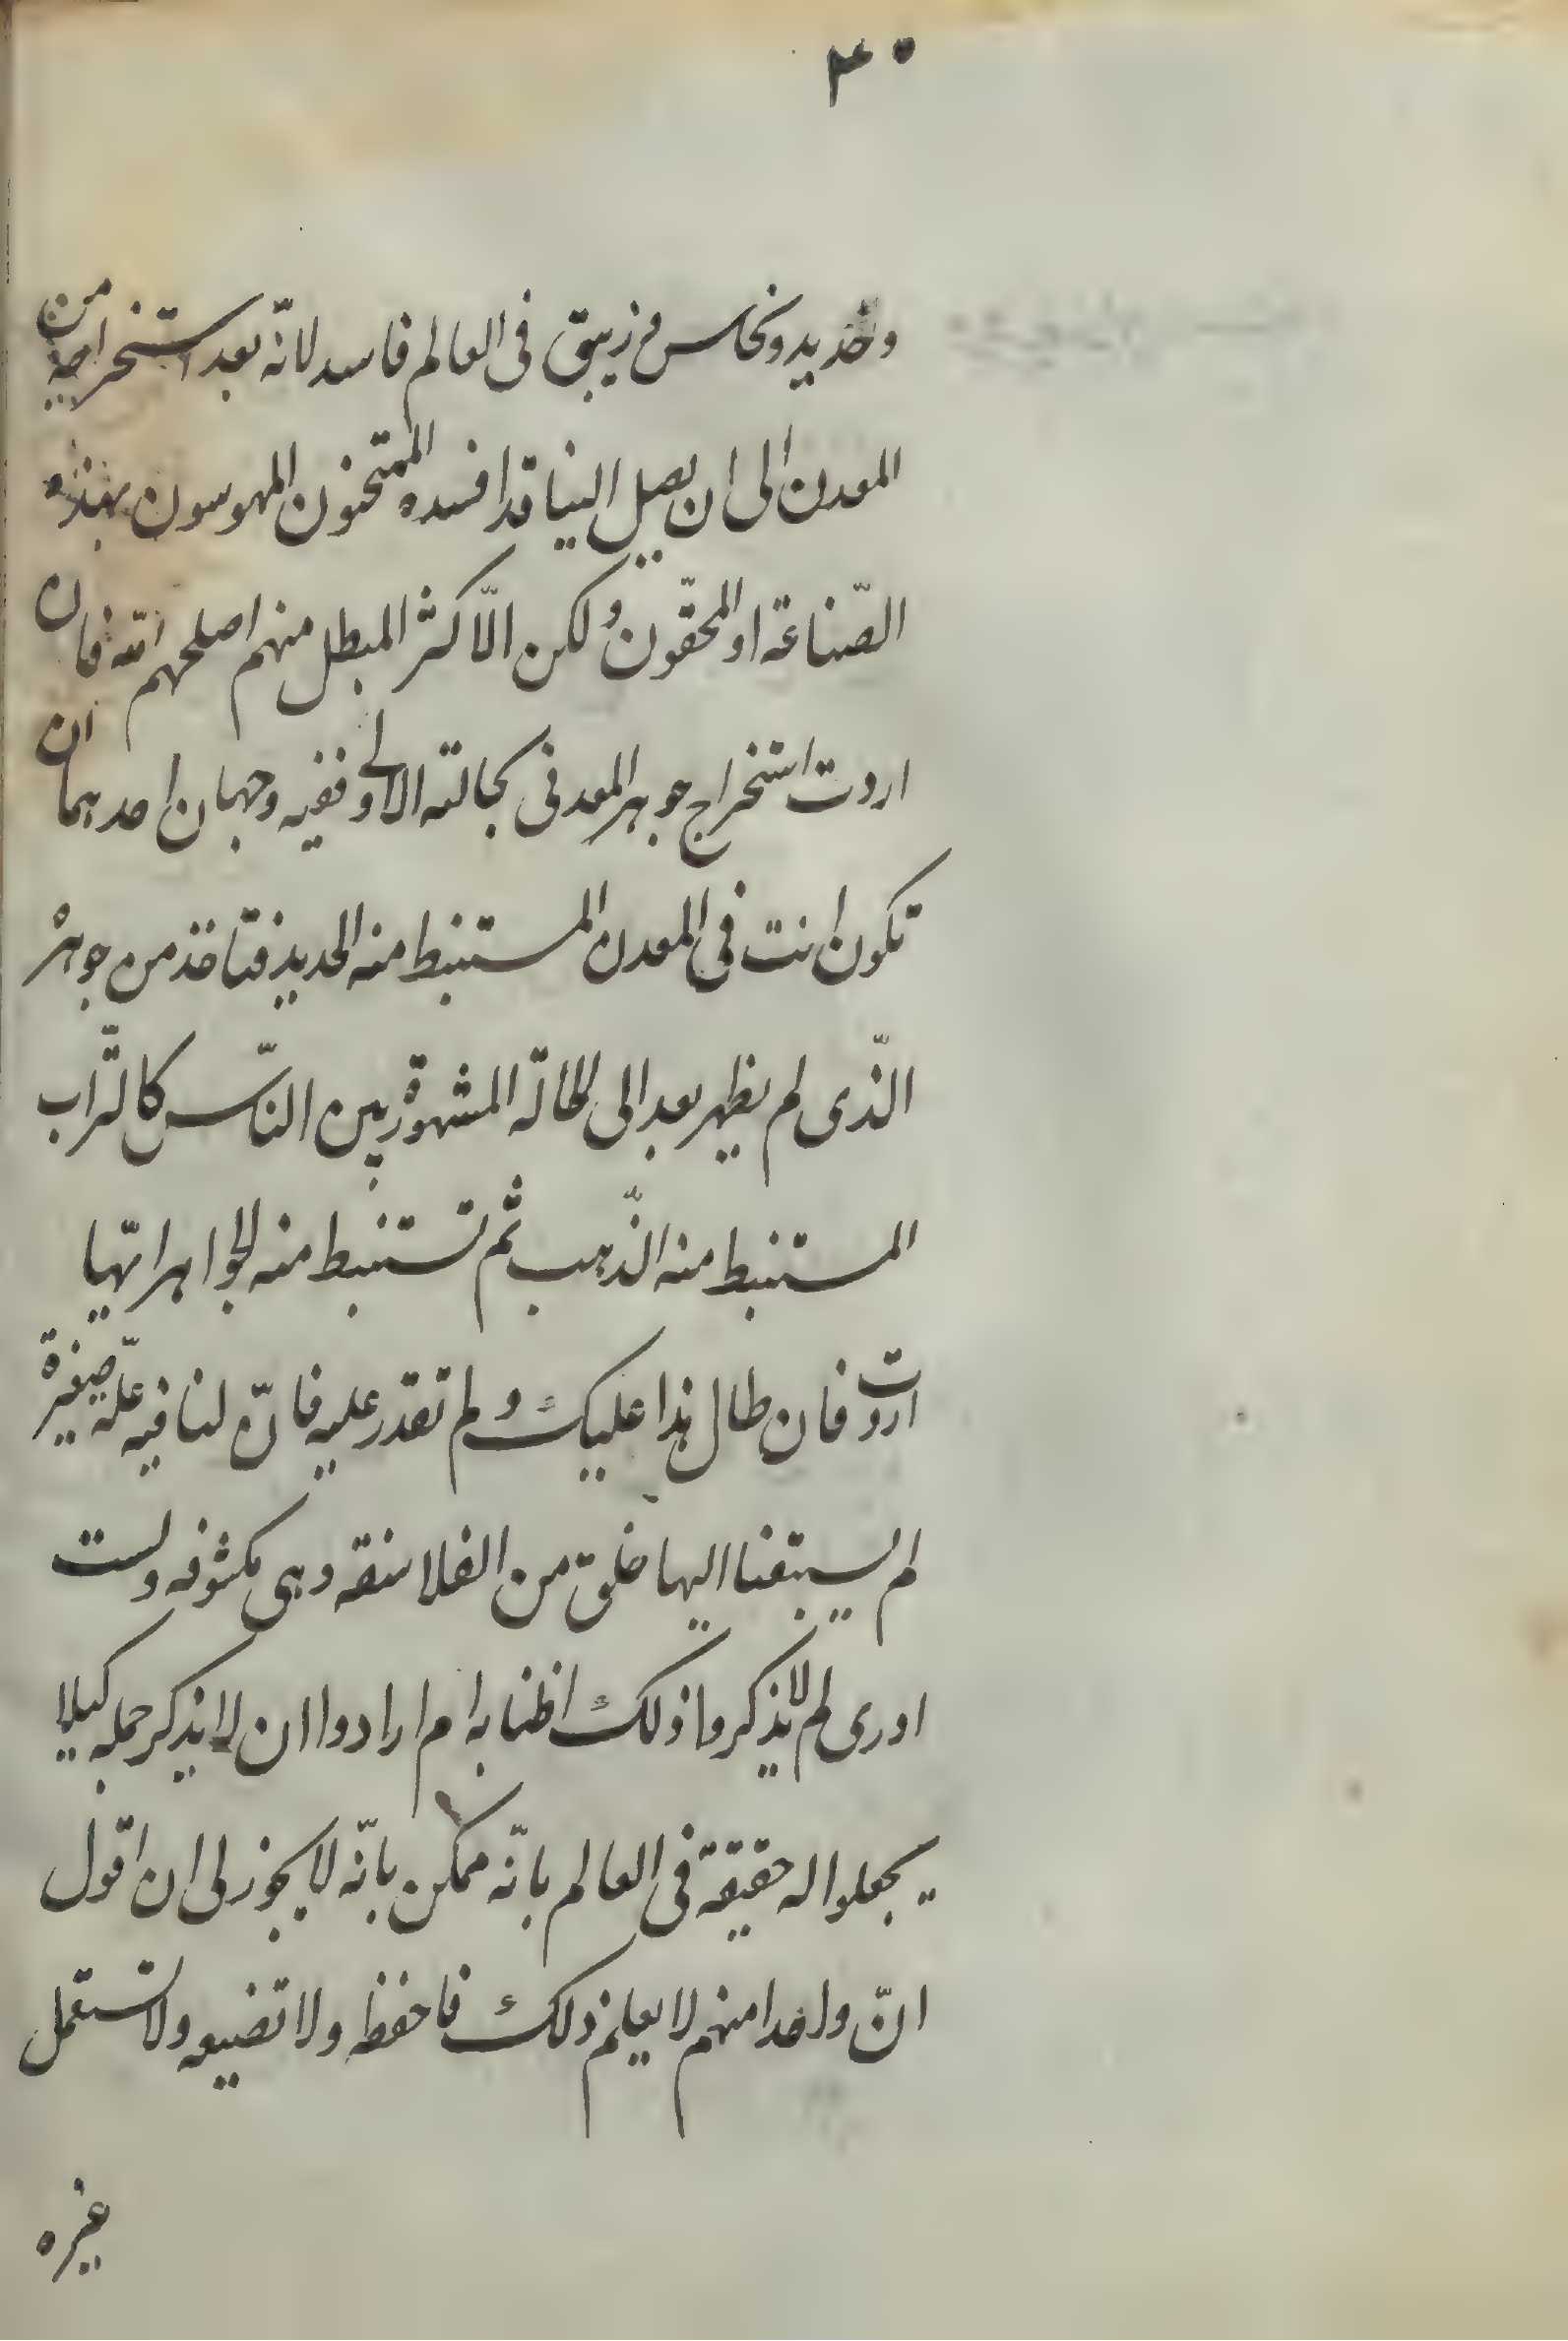 ۴۰
وحديد ونحاس وزيبق فى العالم فاسد لانّه بعد استخراجه من
المعدن الى ان يصل الينا قد افسده الممتحنون المهوسون بهذه
الصّناعة او المحقّون ولكن الّاكثر المبطل منهم اصلحهم الله فان
اردت استخراج جوهر المعدنى بحالته الاولى ففيه وجهان احدهما ان
تكون انت فى المعدن المستنبط منه الحديد فتاخذ من جوهر
الّذى لم يظهر بعد الى الحالة المشهورة بين النّاس كالتّراب
المستنبط منه الذّهب ثم تستنبط منه الجواهر ايّها
اردت فان طال هذا عليك ولم تقدر عليه فانّ لنا فيه علّة صغيرة
لم يسبقنا اليها خلق من الفلاسفة وهى مكشوفه ولست
ادرى لم لا يذكروا ذلك اظنا به ام ارادوا ان لا يذكر جمله كيلا
يجعلوا له حقيقة فى العالم بانّه ممكن بانّه لا يجوز لى ان اقول
انّ واحدا منهم لا يعلم ذلك فاحفظ ولا تضيعه ولا تستعمل
غيره